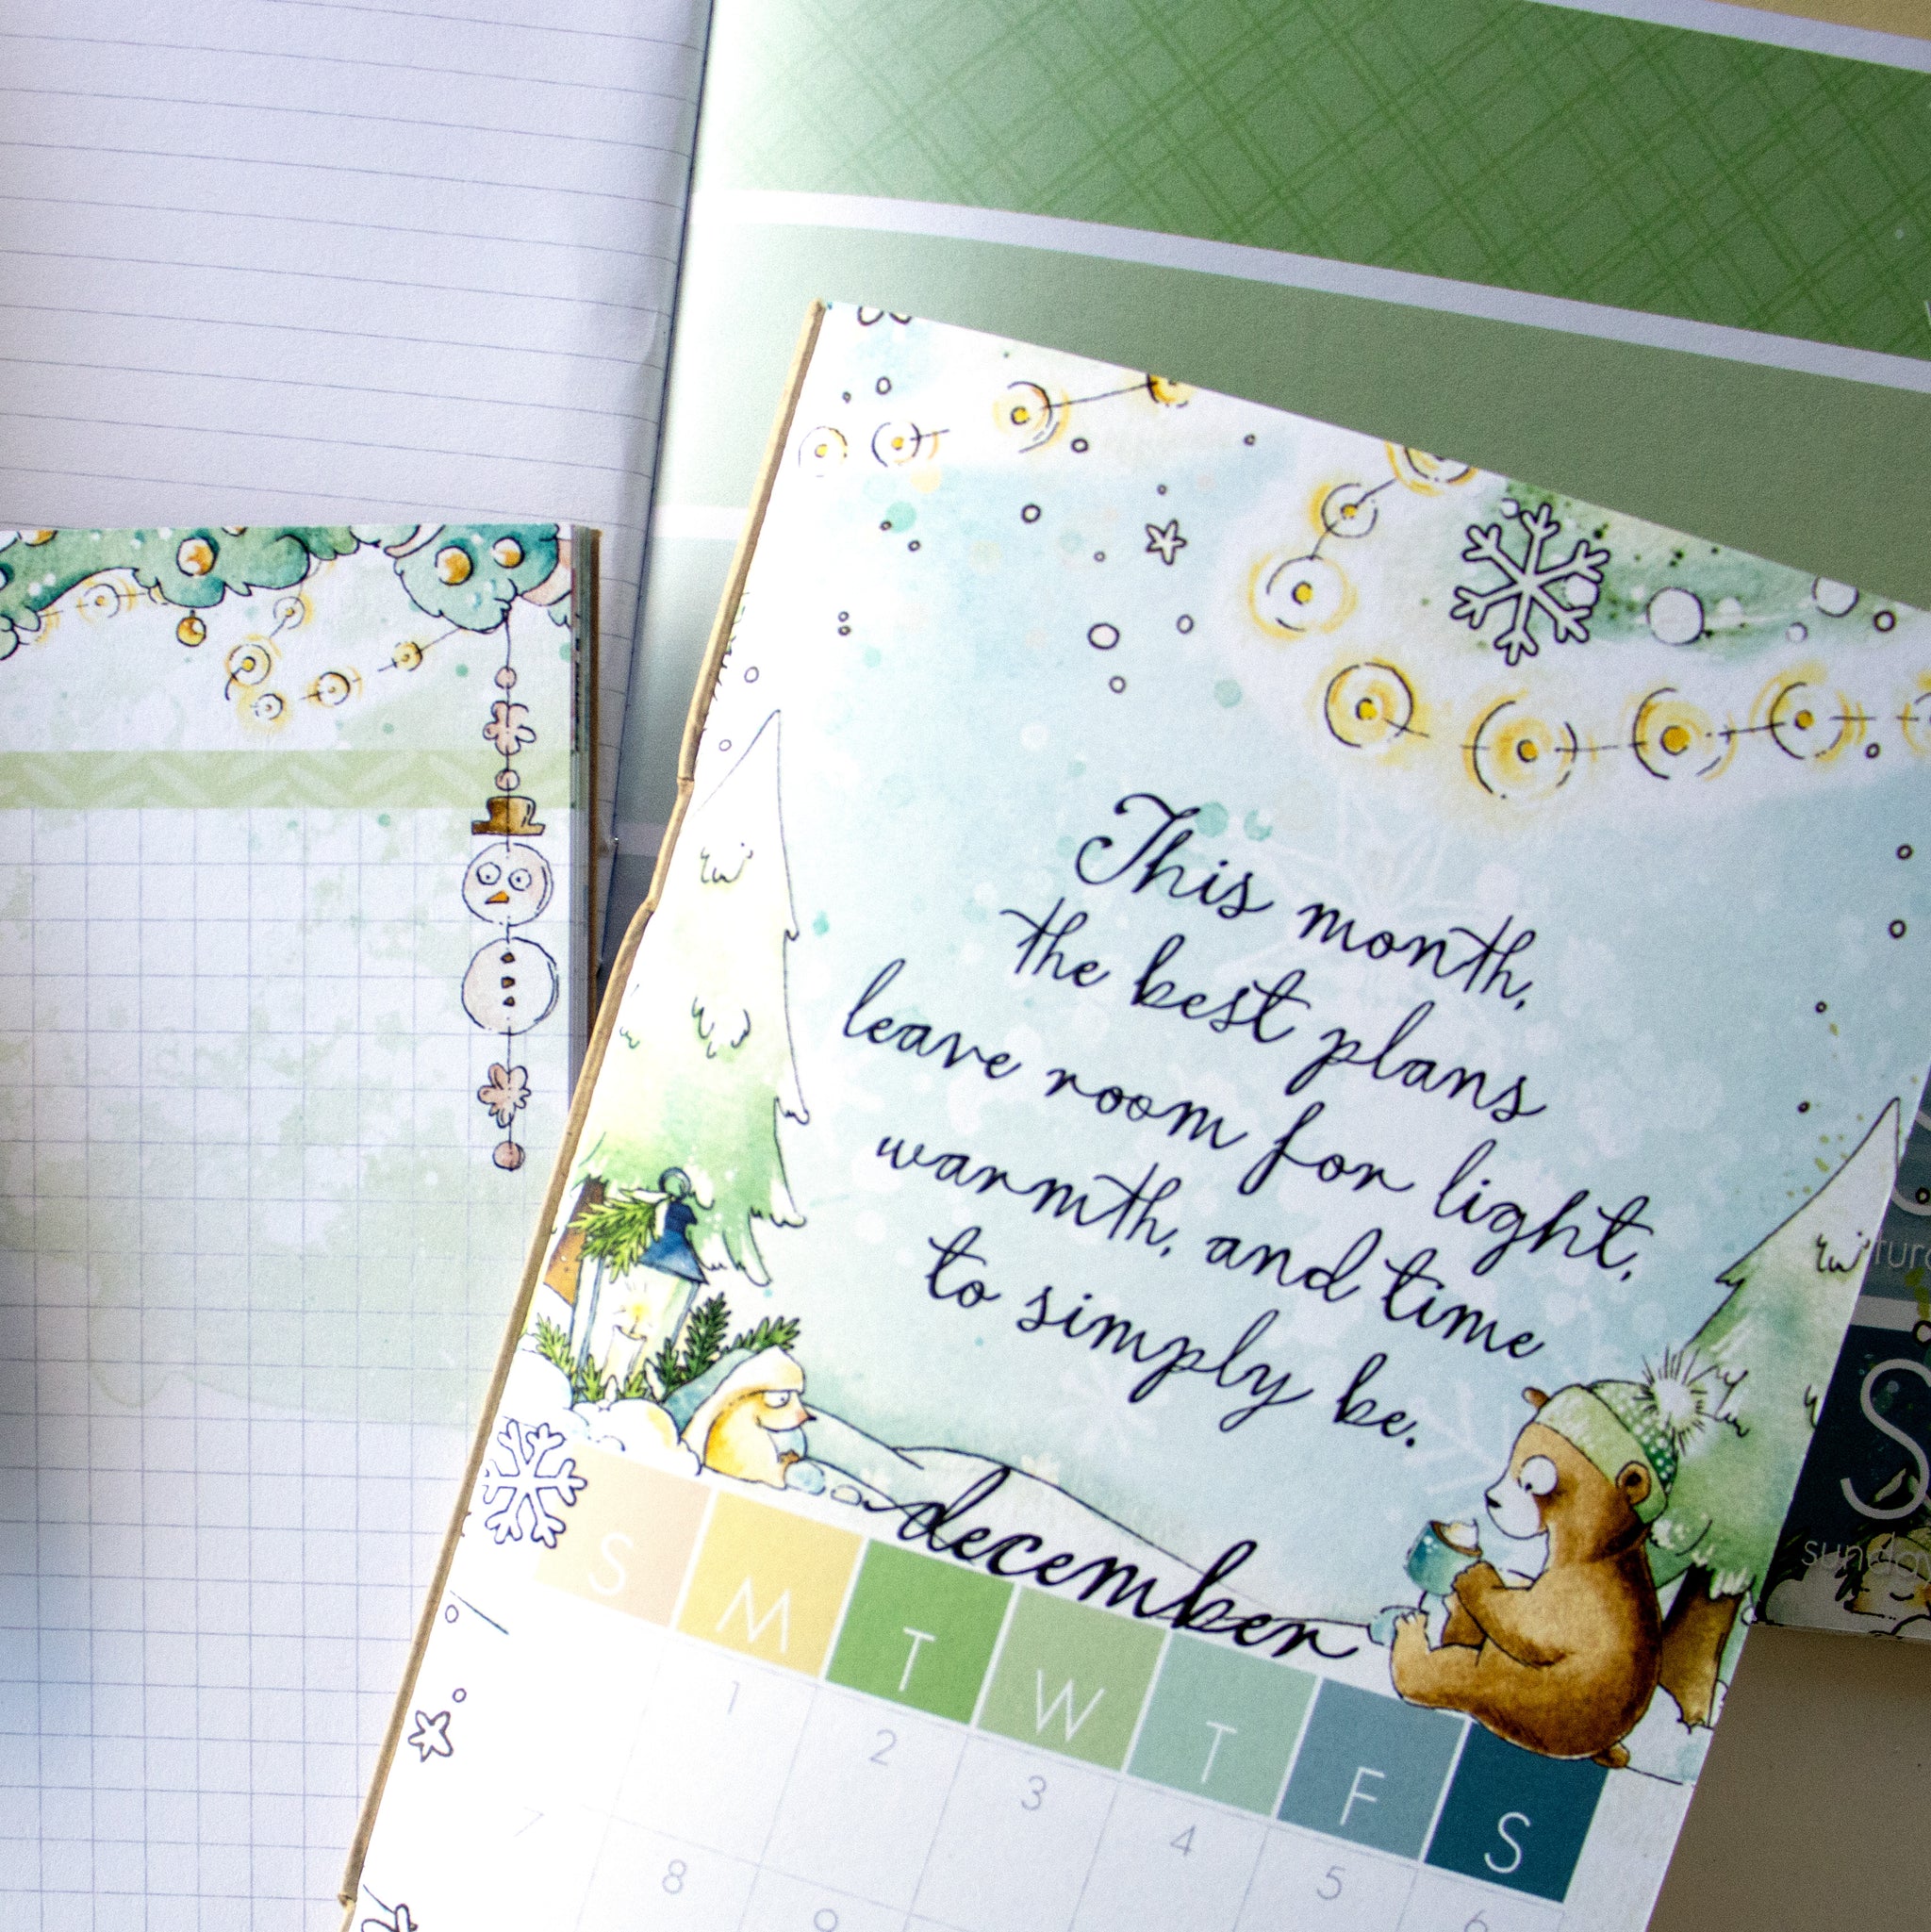 This month,
the best plans
leave room for light,
warmth, and time
to simply be.
december
S M T W T F S
1 2 3 4 5 6
7 8 9
S
sunda